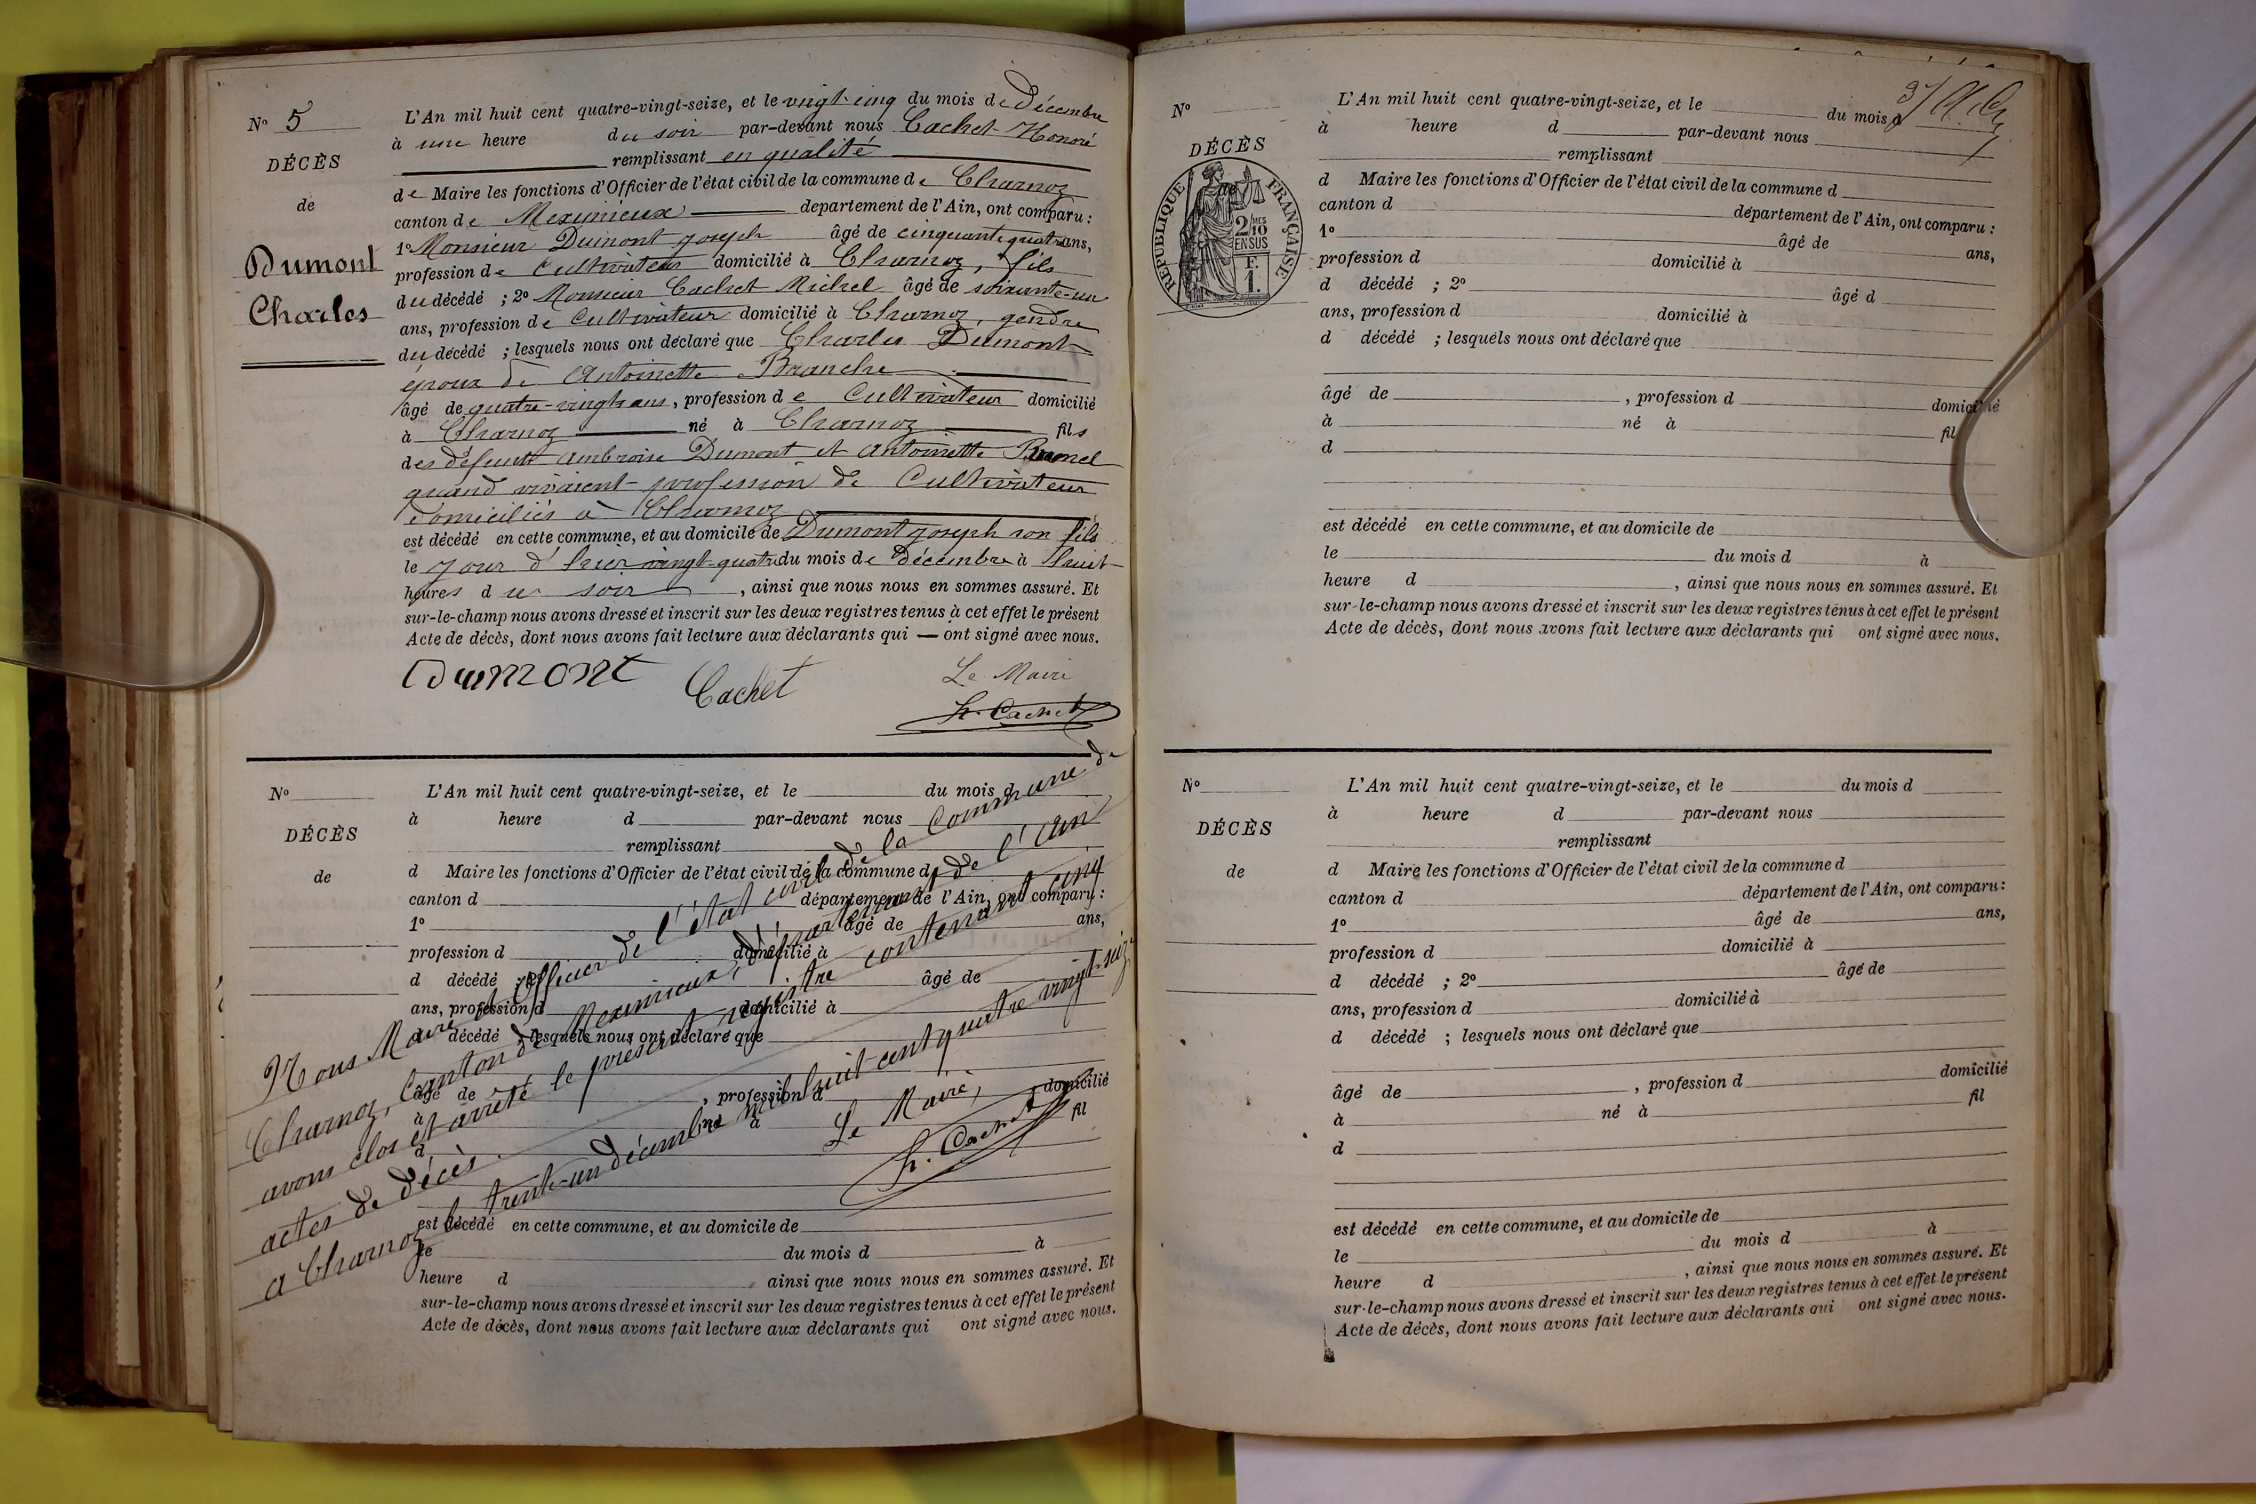 N° 5
DÉCÈS
de
Dumont
Charles
L'An mil huit cent quatre-vingt-seize, et le vingt-cinq du mois de Décembre
à une heure du soir par-devant nous Cachet Honoré
remplissant en qualité
de Maire les fonctions d'Officier de l'état civil de la commune de Charnoz
canton de Meximieux département de l'Ain, ont comparu :
1° Monsieur Dumont Joseph âgé de cinquante quatre ans,
profession de Cultivateur domicilié à Charnoz, fils
du décédé ; 2° Monsieur Cachet Michel âgé de soixante-un
ans, profession de Cultivateur domicilié à Charnoz, gendre
du décédé ; lesquels nous ont déclaré que Charles Dumont
époux de Antoinette Branche
âgé de quatre-vingts ans, profession de Cultivateur domicilié
à Charnoz né à Charnoz fils
des défunts Ambroise Dumont et Antoinette
quand vivaient profession de Cultivateur
domiciliés à Charnoz
est décédé en cette commune, et au domicile de Dumont Joseph son fils
le jour d'hier vingt-quatre du mois de Décembre à huit
heures du soir, ainsi que nous nous en sommes assuré. Et
sur-le-champ nous avons dressé et inscrit sur les deux registres tenus à cet effet le présent
Acte de décès, dont nous avons fait lecture aux déclarants qui — ont signé avec nous.
Dumont Cachet Le Maire
h. Cachet
N°
DÉCÈS
de
L'An mil huit cent quatre-vingt-seize, et le du mois d
à heure d par-devant nous
remplissant
d Maire les fonctions d'Officier de l'état civil de la commune d
canton d département de l'Ain, ont comparu :
1° âgé de ans,
profession d domicilié à
d décédé ; 2° âgé de
ans, profession d domicilié à
d décédé ; lesquels nous ont déclaré que
âgé de , profession d domicilié
à né à fil
d
est décédé en cette commune, et au domicile de
le du mois d à
heure d , ainsi que nous nous en sommes assuré. Et
sur-le-champ nous avons dressé et inscrit sur les deux registres tenus à cet effet le présent
Acte de décès, dont nous avons fait lecture aux déclarants qui ont signé avec nous.
Nous Maire et Officier de l'état civil de la Commune de
Charnoz, Canton de Meximieux, département de l'Ain
avons clos et arrêté le présent registre contenant cinq
actes de décès.
a Charnoz le trente-un décembre mil huit cent quatre vingt-seize
Le Maire,
h. Cachet
N°
DÉCÈS
de
RÉPUBLIQUE FRANÇAISE
2/10 MES
EN SUS
F.
1.
L'An mil huit cent quatre-vingt-seize, et le du mois d
à heure d par-devant nous
remplissant
d Maire les fonctions d'Officier de l'état civil de la commune d
canton d département de l'Ain, ont comparu :
1° âgé de ans,
profession d domicilié à
d décédé ; 2° âgé d
ans, profession d domicilié à
d décédé ; lesquels nous ont déclaré que
âgé de , profession d domicilié
à né à fil
d
est décédé en cette commune, et au domicile de
le du mois d à
heure d , ainsi que nous nous en sommes assuré. Et
sur-le-champ nous avons dressé et inscrit sur les deux registres tenus à cet effet le présent
Acte de décès, dont nous avons fait lecture aux déclarants qui ont signé avec nous.
N°
DÉCÈS
de
L'An mil huit cent quatre-vingt-seize, et le du mois d
à heure d par-devant nous
remplissant
d Maire les fonctions d'Officier de l'état civil de la commune d
canton d département de l'Ain, ont comparu :
1° âgé de ans,
profession d domicilié à
d décédé ; 2° âgé de
ans, profession d domicilié à
d décédé ; lesquels nous ont déclaré que
âgé de , profession d domicilié
à né à fil
d
est décédé en cette commune, et au domicile de
le du mois d à
heure d , ainsi que nous nous en sommes assuré. Et
sur-le-champ nous avons dressé et inscrit sur les deux registres tenus à cet effet le présent
Acte de décès, dont nous avons fait lecture aux déclarants qui ont signé avec nous.